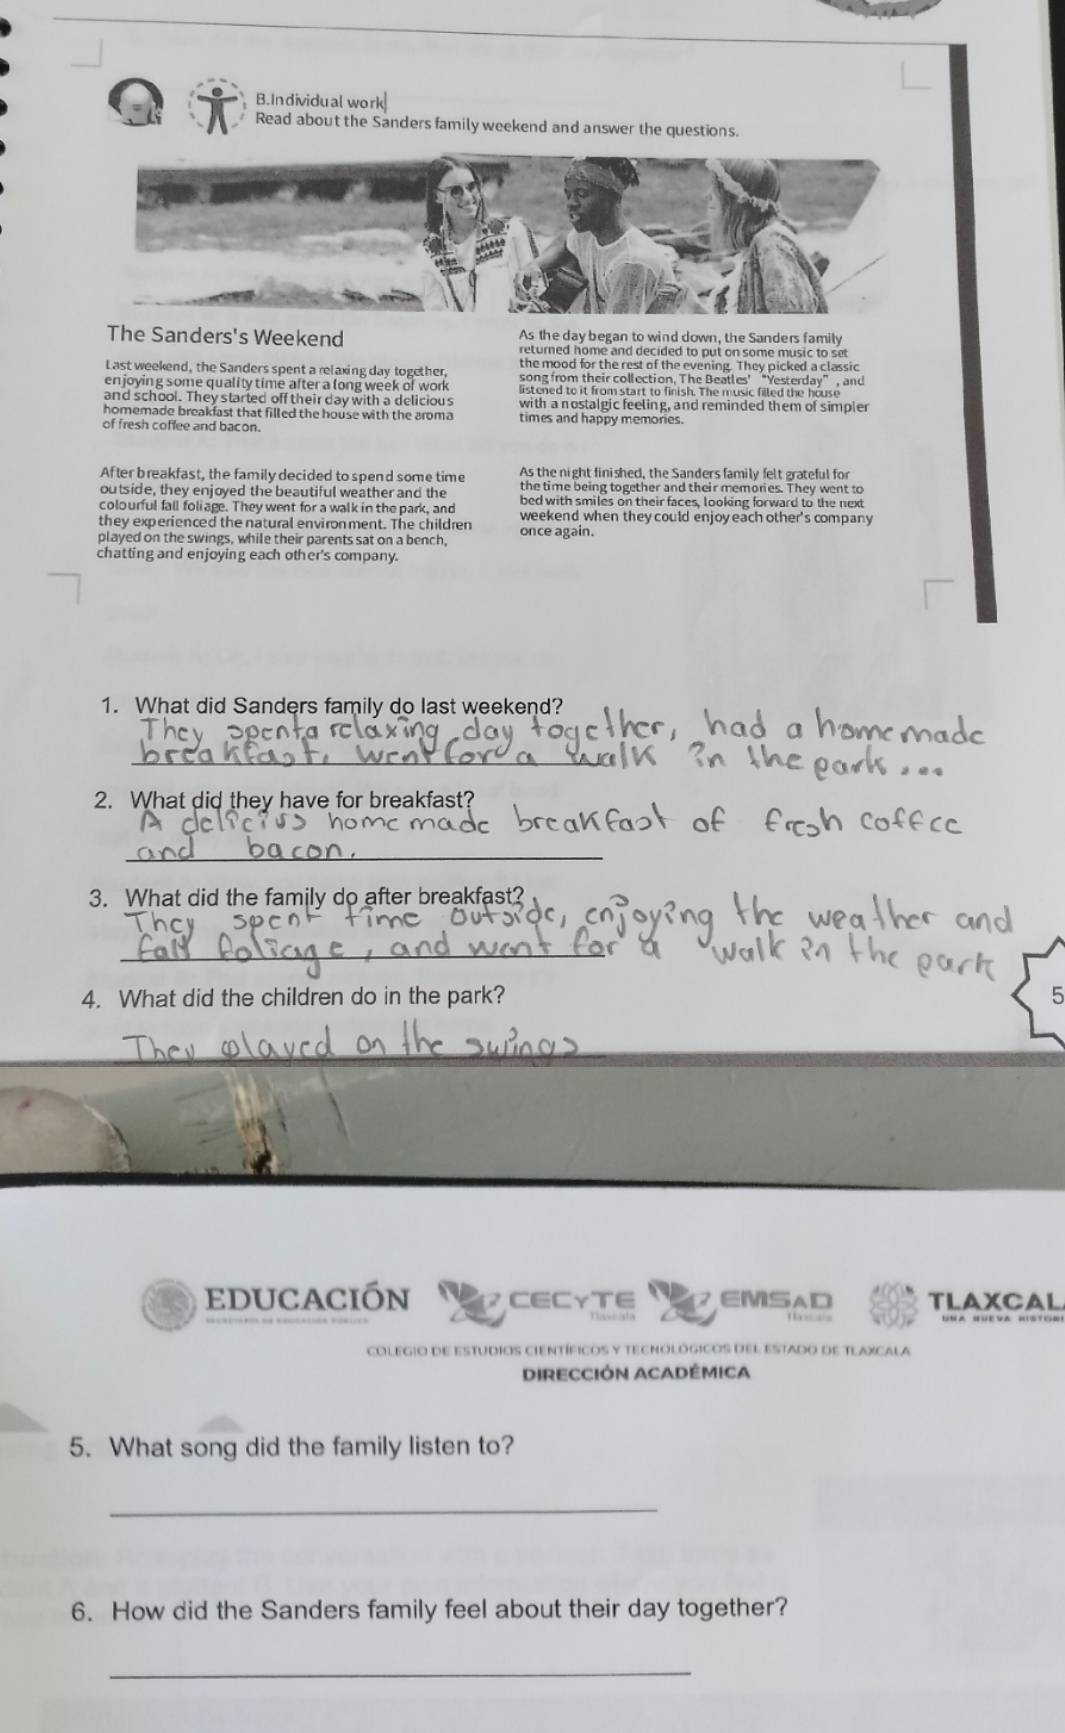 B.Individual work
Read about the Sanders family weekend and answer the questions.
The Sanders's Weekend
Last weekend, the Sanders spent a relaxing day together,
enjoying some quality time after a long week of work
and school. They started off their day with a delicious
homemade breakfast that filled the house with the aroma
of fresh coffee and bacon.
After breakfast, the family decided to spend some time
outside, they enjoyed the beautiful weather and the
colourful fall foliage. They went for a walk in the park, and
they experienced the natural environment. The children
played on the swings, while their parents sat on a bench,
chatting and enjoying each other's company.
As the day began to wind down, the Sanders family
returned home and decided to put on some music to set
the mood for the rest of the evening. They picked a classic
song from their collection, The Beatles' "Yesterday" , and
listened to it from start to finish. The music filled the house
with a nostalgic feeling, and reminded them of simpler
times and happy memories.
As the night finished, the Sanders family felt grateful for
the time being together and their memories. They went to
bed with smiles on their faces, looking forward to the next
weekend when they could enjoy each other's company
once again.
1. What did Sanders family do last weekend?
They spent a relaxing day together, had a homemade
breakfast, went for a walk in the park...
2. What did they have for breakfast?
A homemade breakfast of fresh coffee
and bacon.
3. What did the family do after breakfast?
They spent time outside, enjoying the weather and
fall foliage, and went for a walk in the park
4. What did the children do in the park?
They played on the swings
5
EDUCACIÓN
CECyTE
Tlaxcala
EMSaD
Tlaxcala
TLAXCAL
UNA NUEVA HISTORI
COLEGIO DE ESTUDIOS CIENTÍFICOS Y TECNOLÓGICOS DEL ESTADO DE TLAXCALA
DIRECCIÓN ACADÉMICA
5. What song did the family listen to?
6. How did the Sanders family feel about their day together?